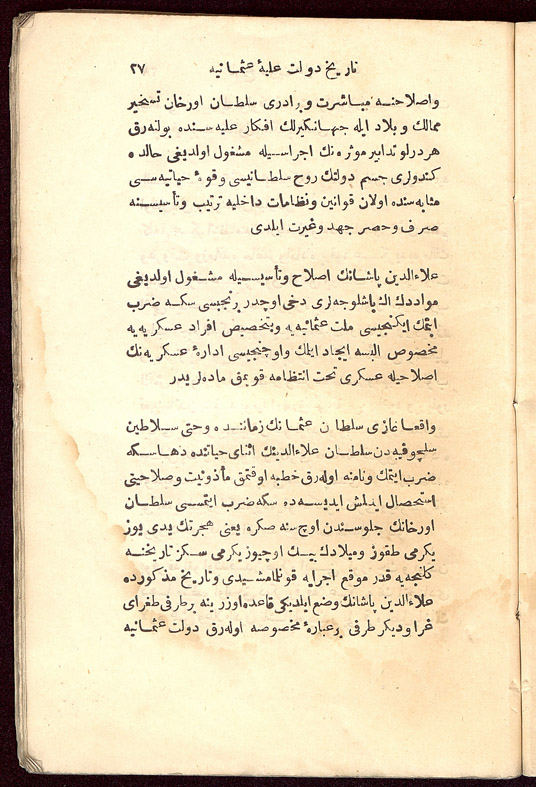 تاریخ دولت علیهٔ عثمانیه ٢٧
واصلاحنه مباشرت و برادری سلطان اورخان تسخیر
ممالك و بلاد ایله جهانگیرلك افکار علیه سنده بولنه رق
هر درلو تدابیر موثره نك اجراسیله مشغول اولدیغی حالده
کندولری جسم دولتك روح سلطانیسی وقوهٔ حیاتیه سی
مثابه سنده اولان قوانین ونظامات داخلیه ترتیب وتأسیسنه
صرف وحصر جهد وغیرت ایلدی
علاءالدین پاشانك اصلاح وتأسیسیله مشغول اولدیغی
مواددك الك باشلوجه لری دخی اوچدر برنجیسی سکه ضرب
ایتمك ایکنجیسی ملت عثمانیه یه وبتخصیص افراد عسکریه یه
مخصوص البسه ایجاد ایتمك واوچنجیسی ادارهٔ عسکریه نك
اصلاحیله عسکری تحت انتظامه قویمق ماده لریدر
واقعا غازی سلطان عثمانك زماننده وحتی سلاطین
سلجوقیه دن سلطان علاءالدینك اثنای حیاتنده دها سکه
ضرب ایتمك ونامنه اوله رق خطبه اوقتمق مأذونیت وصلاحیتی
استحصال ایدلمش ایدیسه ده سکه ضرب ایتمسی سلطان
اورخانك جلوسندن اوچ سنه صکره یعنی هجرتك یدی یوز
یکرمی طقوز ومیلادك بیك اوچیوز یکرمی سکز تاریخنه
کلنجه یه قدر موقع اجرایه قونلمامشیدی وتاریخ مذکورده
علاءالدین پاشانك وضع ایلدیکی قاعده اوزرینه بر طرفی طغرای
غرا ودیکر طرفی بر عبارهٔ مخصوصه اوله رق دولت عثمانیه